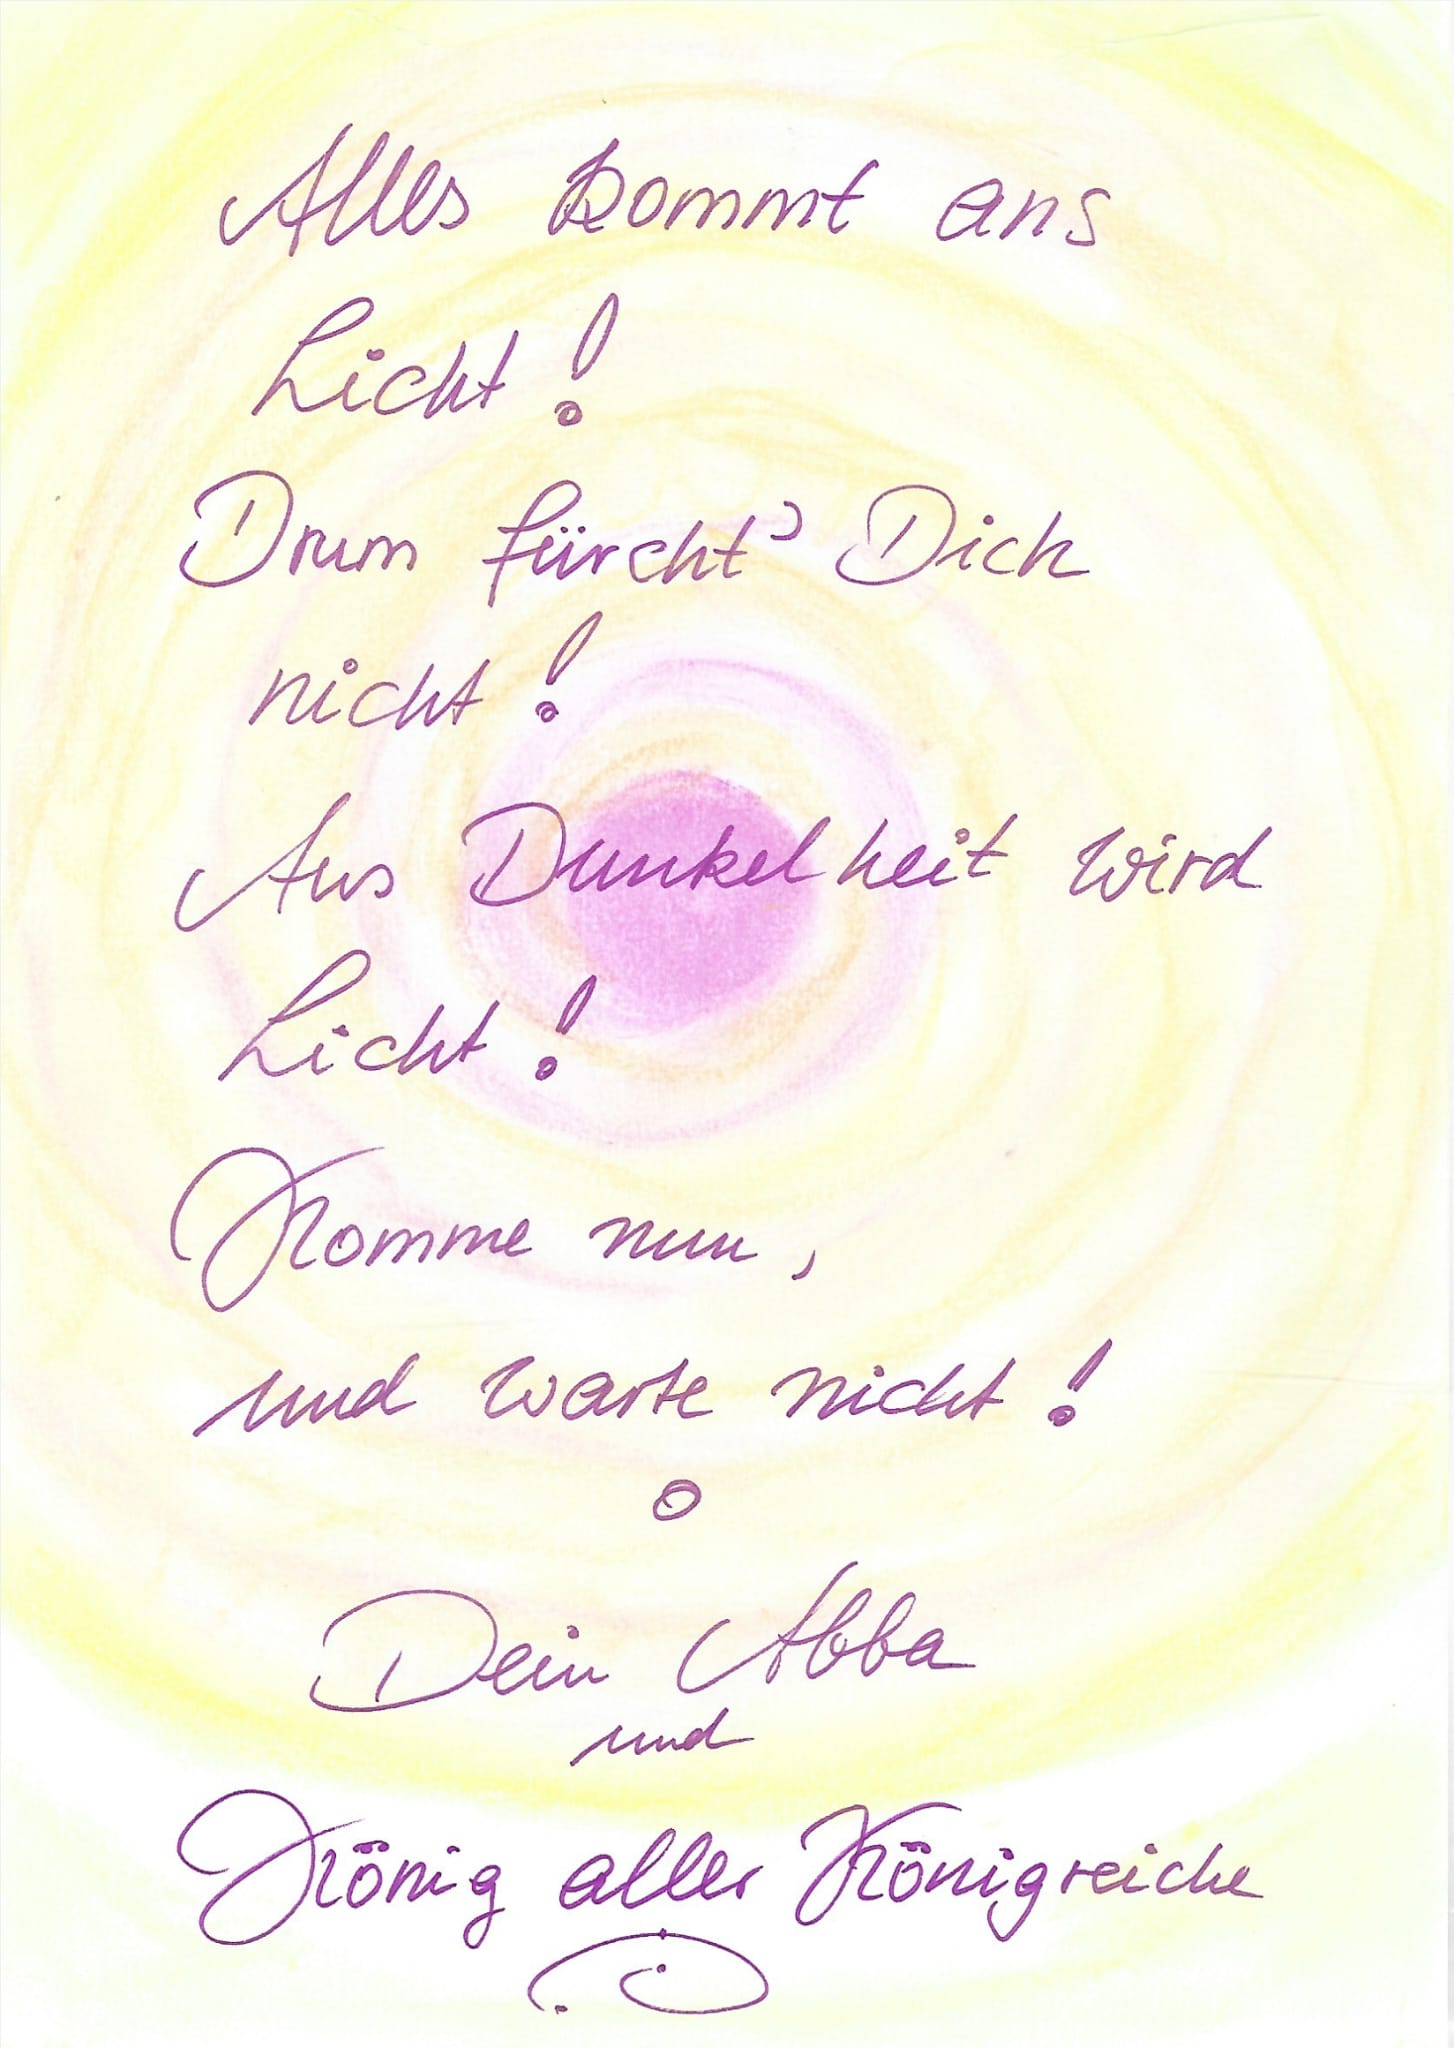 Alles kommt ans
Licht!
Drum fürcht' Dich
nicht!
Aus Dunkelheit wird
Licht!
Komme nun,
und warte nicht!
Dein Abba
und
König aller Königreiche